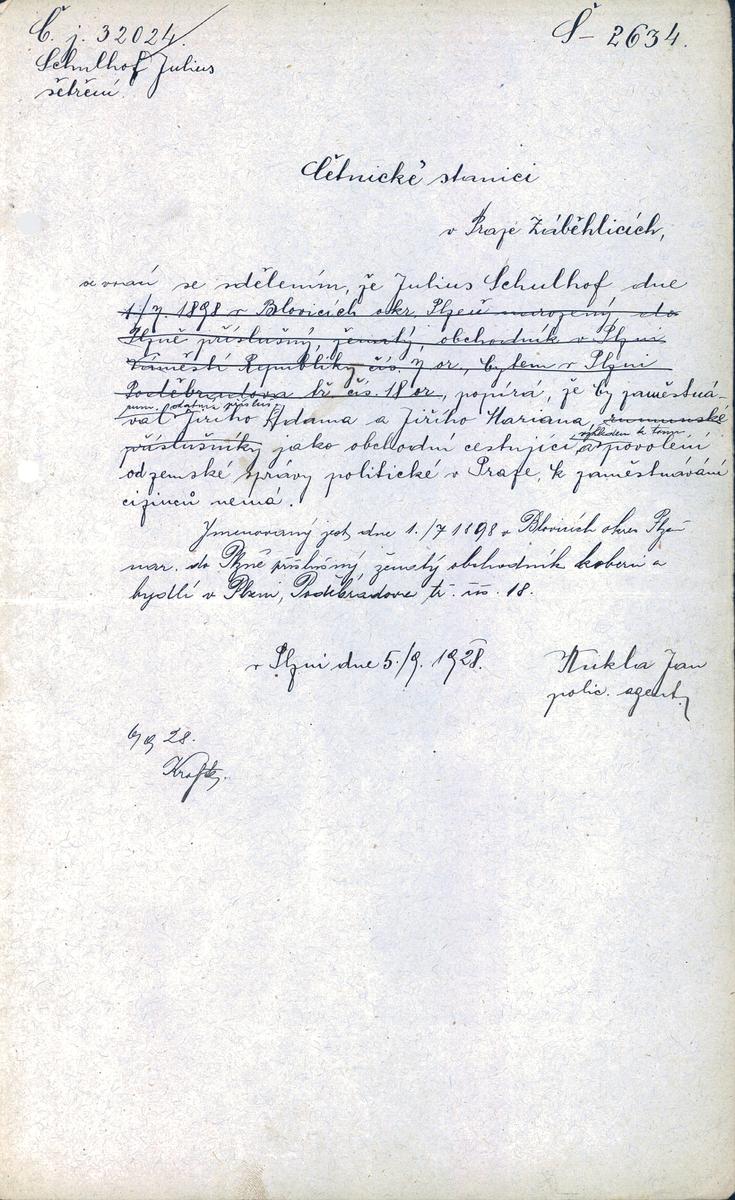 Č. j. 32024.
Š- 2634.
Schulhof Julius
šetření.
Četnické stanici
v Praze Záběhlicích,
se vrací se sdělením, že Julius Schulhof dne
1./7. 1898 v Blovicích okr. Plzeň narozený, do
Plzně příslušný, ženatý, obchodník v Plzni
Náměstí Republiky čís. 7 or., bytem v Plzni
Poděbradova tř. čís. 18 or., popírá, že by zaměstná-
val Jiřího Adama a Jiřího Mariana, rumunské
příslušníky jako obchodní cestující, a vzhledem k tomu povolení
od zemské správy politické v Praze, k zaměstnávání
cizinců nemá.
Jmenovaný jest dne 1./7 1898 v Blovicích okres Plzeň
nar. do Plzně příslušný ženatý obchodník koberci a
bydlí v Plzni, Poděbradova tř. čís. 18.
v Plzni dne 5./9. 1928.
Kukla Jan
polic. agent.
6/9 28.